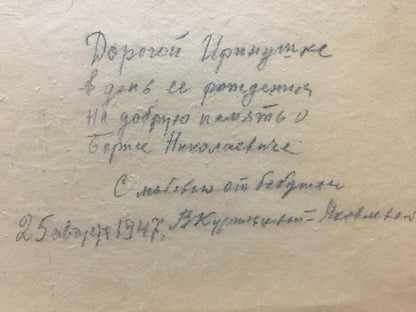 Дорогой Иринушке
в день ее рождения
На добрую память о
Борисе Николаевиче
С любовью от бабушки
25 августа 1947.